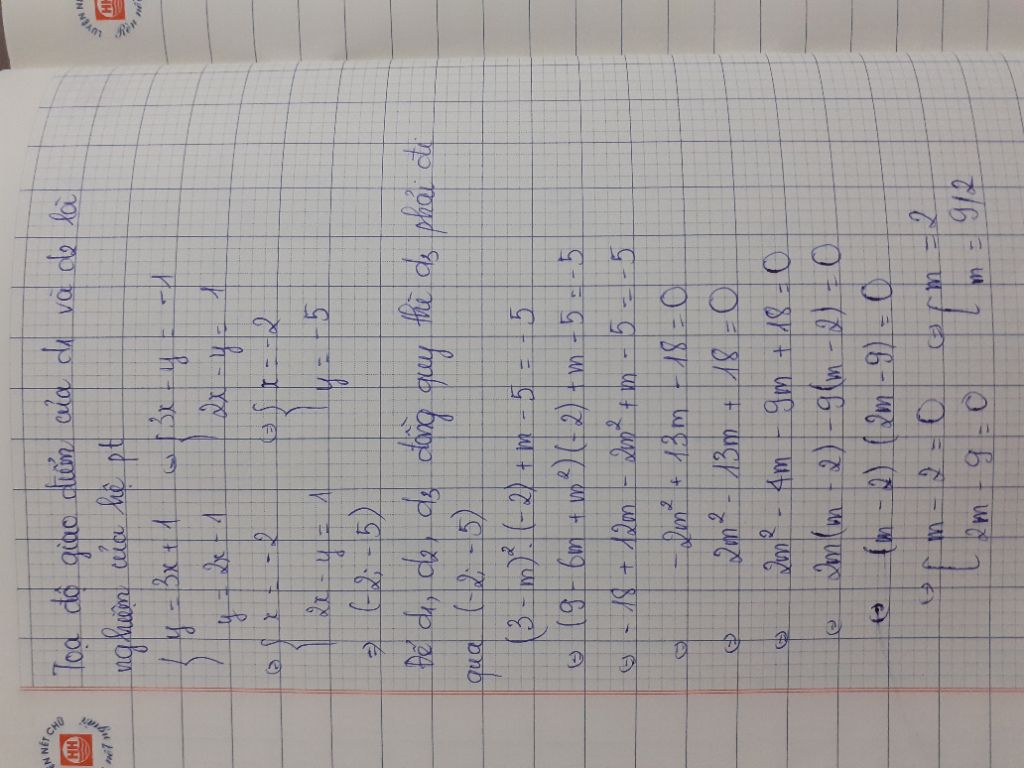 Tọa độ giao điểm của d1 và d2 là
nghiệm của hệ pt
{ y = 3x + 1 ⇔ { 3x - y = -1
y = 2x - 1 2x - y = 1
⇔ { x = -2 ⇔ { x = -2
2x - y = 1 y = -5
⇒ (-2; -5)
Để d1, d2, d3 đồng quy thì d3 phải đi
qua (-2; -5)
(3 - m)². (-2) + m - 5 = -5
⇔ (9 - 6m + m²)(-2) + m - 5 = -5
⇔ -18 + 12m - 2m² + m - 5 = -5
⇔ -2m² + 13m - 18 = 0
⇔ 2m² - 13m + 18 = 0
⇔ 2m² - 4m - 9m + 18 = 0
⇔ 2m(m - 2) - 9(m - 2) = 0
⇔ (m - 2)(2m - 9) = 0
⇔ [ m - 2 = 0 ⇔ [ m = 2
2m - 9 = 0 m = 9/2